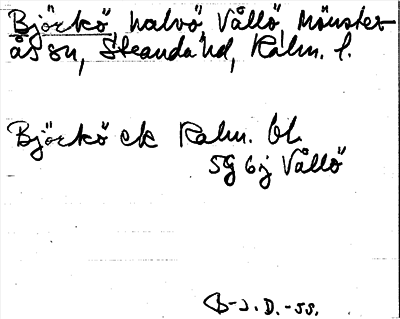 Björkö, halvö, Vållö, Mönster-
ås sn, Stranda hd, Kalm. l.
Björkö ek Kalm. bl.
5G 6j Vållö
B-J. D.-55.